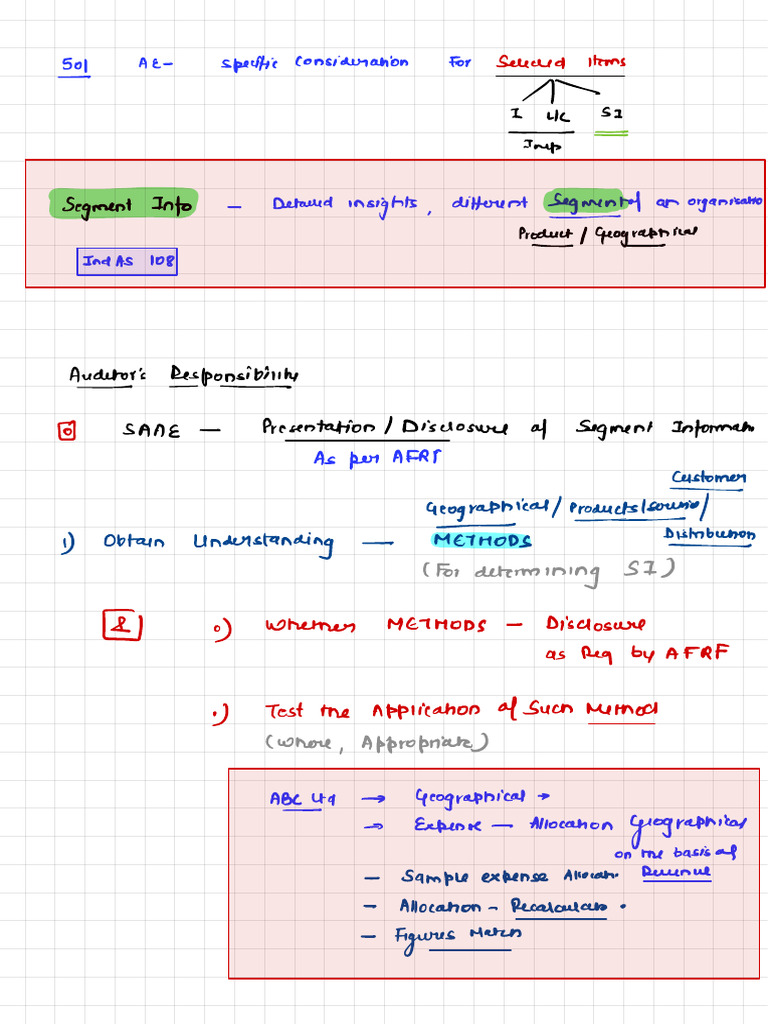 501 AE- Specific Consideration For Selected Items
I L/C SI
Inep
Segment Info — Detailed insights, different Segment of an organisatio
Product / Geographical
Ind AS 108
Auditor's Responsibility
SAAE — Presentation / Disclosure of Segment Informati
As per AFRF
Customer
Geographical / Products/ /
1) Obtain Understanding — METHODS Distribution
(For determining SI)
& o) Whether METHODS — Disclosure
as Req by AFRF
.) Test the Application of Such Method
(where, Appropriate)
ABC Ltd → Geographical →
→ Expense — Allocation Geographical
on the basis of
— Sample expense Allocati. Revenue
— Allocation - Recalculate .
— Figures Match